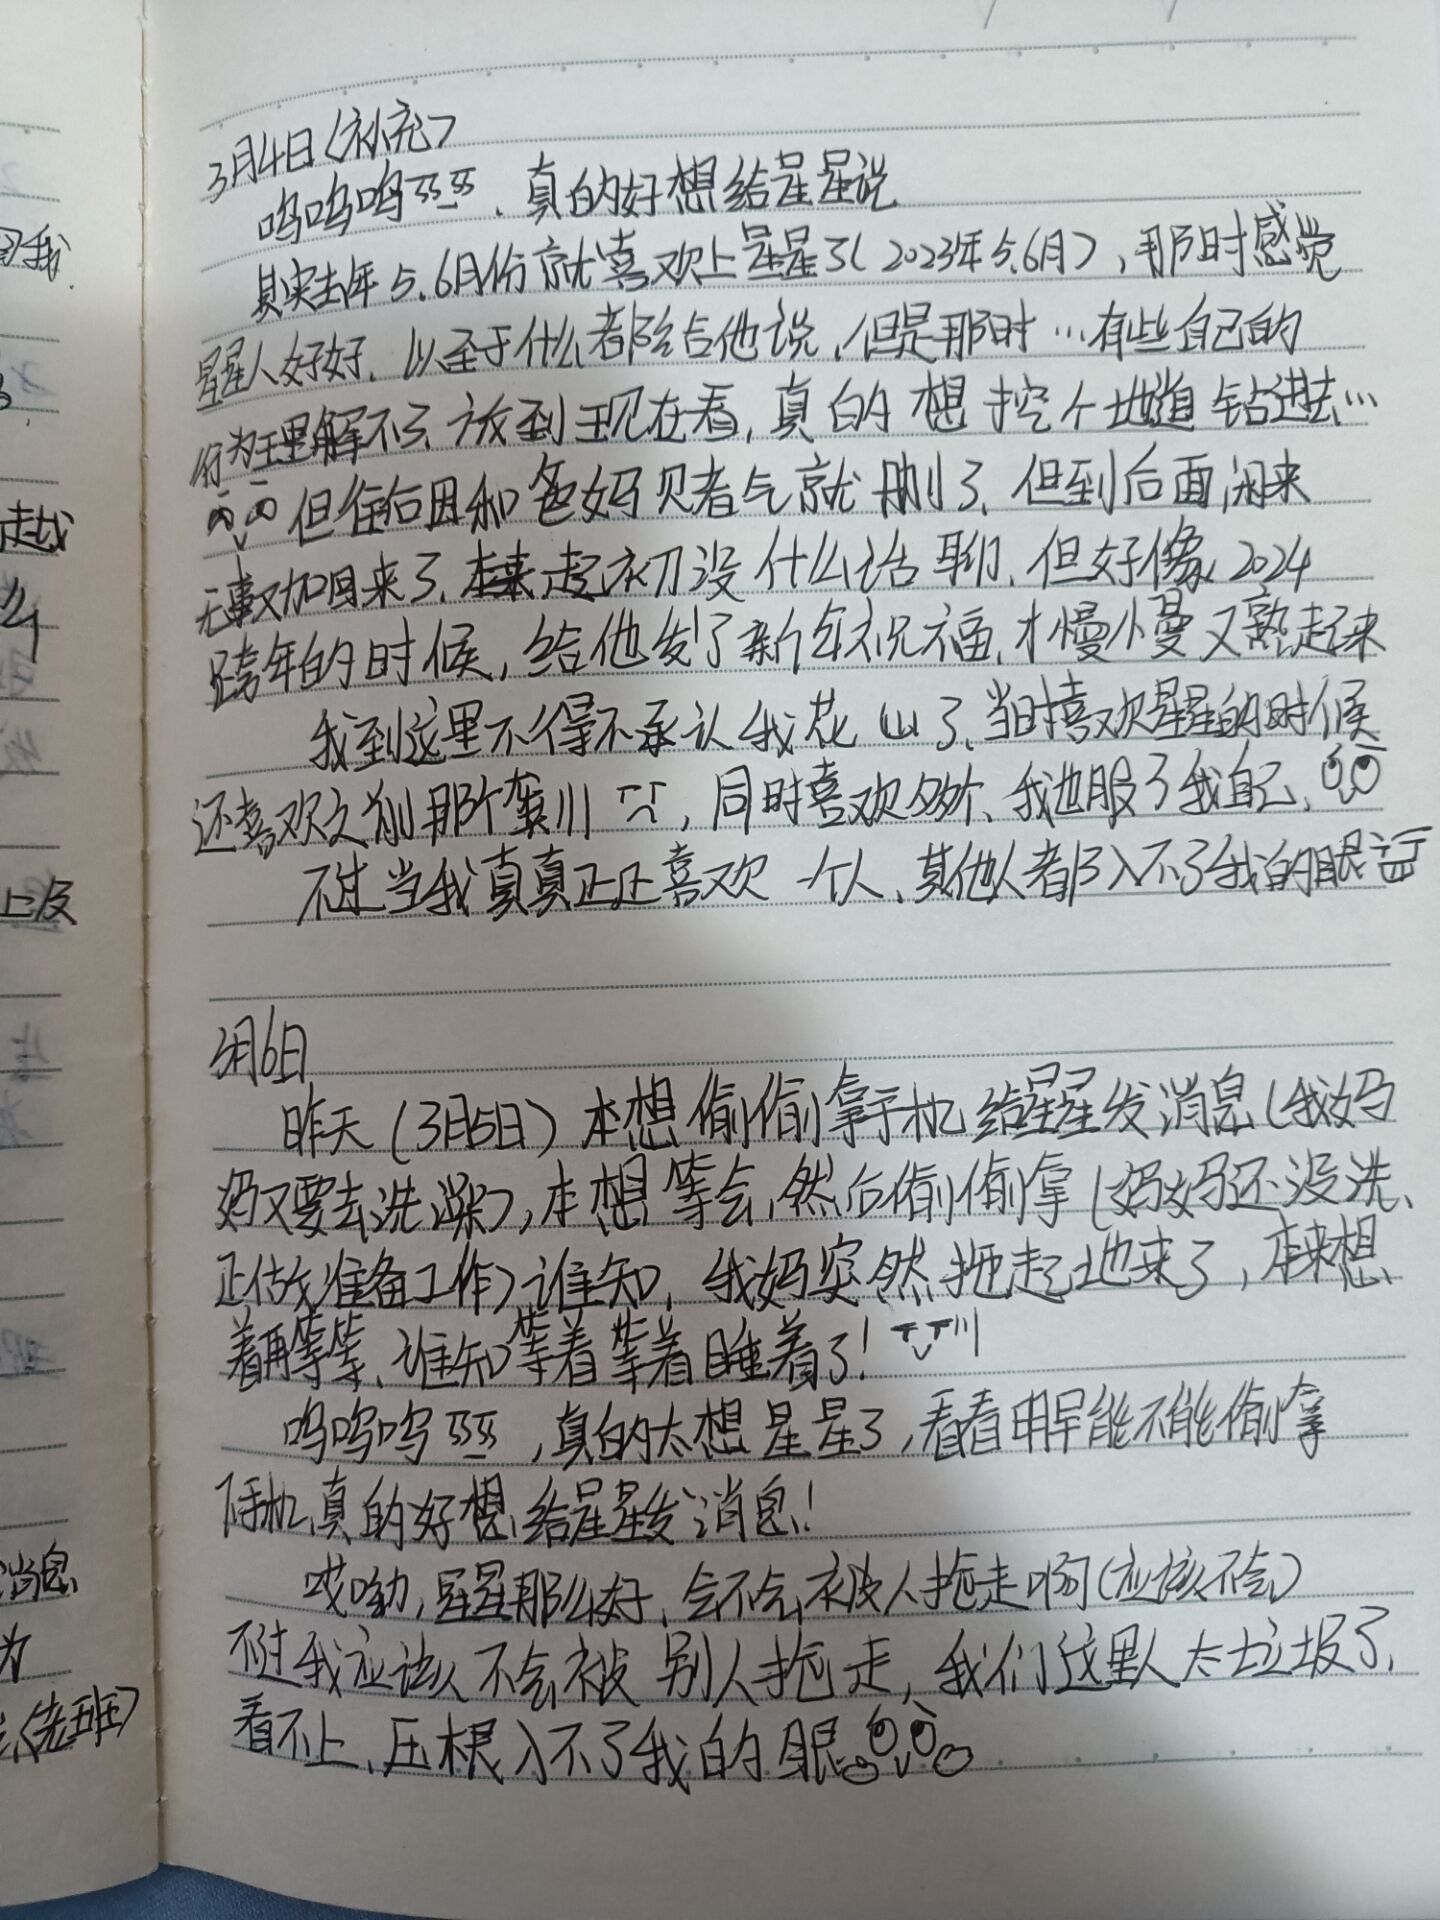 3月4日〈补充〉
呜呜呜, 真的好想给星星说
其实去年5.6月份就喜欢上星星了(2023年5.6月), 那时感觉
星星人好好, 以至于什么都给他说, 但是那时…有些自己的
行为理解不了, 放到现在看, 真的想挖个地道钻进去…
但往后因和爸妈赌气就删了, 但到后面, 闲来
无事又加回来了, 本来起初没什么话聊, 但好像, 2024
跨年的时候, 给他发了新年祝福, 才慢慢又熟起来
我到这里不得不承认我花心了, 当时喜欢星星的时候
还喜欢之前那个 川, 同时喜欢多个, 我也服了我自己,
不过当我真真正正喜欢一个人, 其他人都入不了我的眼
3月6日
昨天(3月5日)本想偷偷拿手机给星星发消息(我妈
妈又要去洗澡), 本想等会, 然后偷偷拿(妈妈还没洗、
正做准备工作)谁知, 我妈突然拖起地来了, 本来想
着再等等, 谁知等着等着睡着了!
呜呜呜, 真的太想星星了, 看看明早能不能偷拿
下手机, 真的好想给星星发消息!
哎呦, 星星那么好, 会不会被人抱走啊(应该不会)
不过我应该不会被别人抱走, 我们这里人太垃圾了,
看不上, 压根入不了我的眼
我
越
么
上没
消息
(先班)